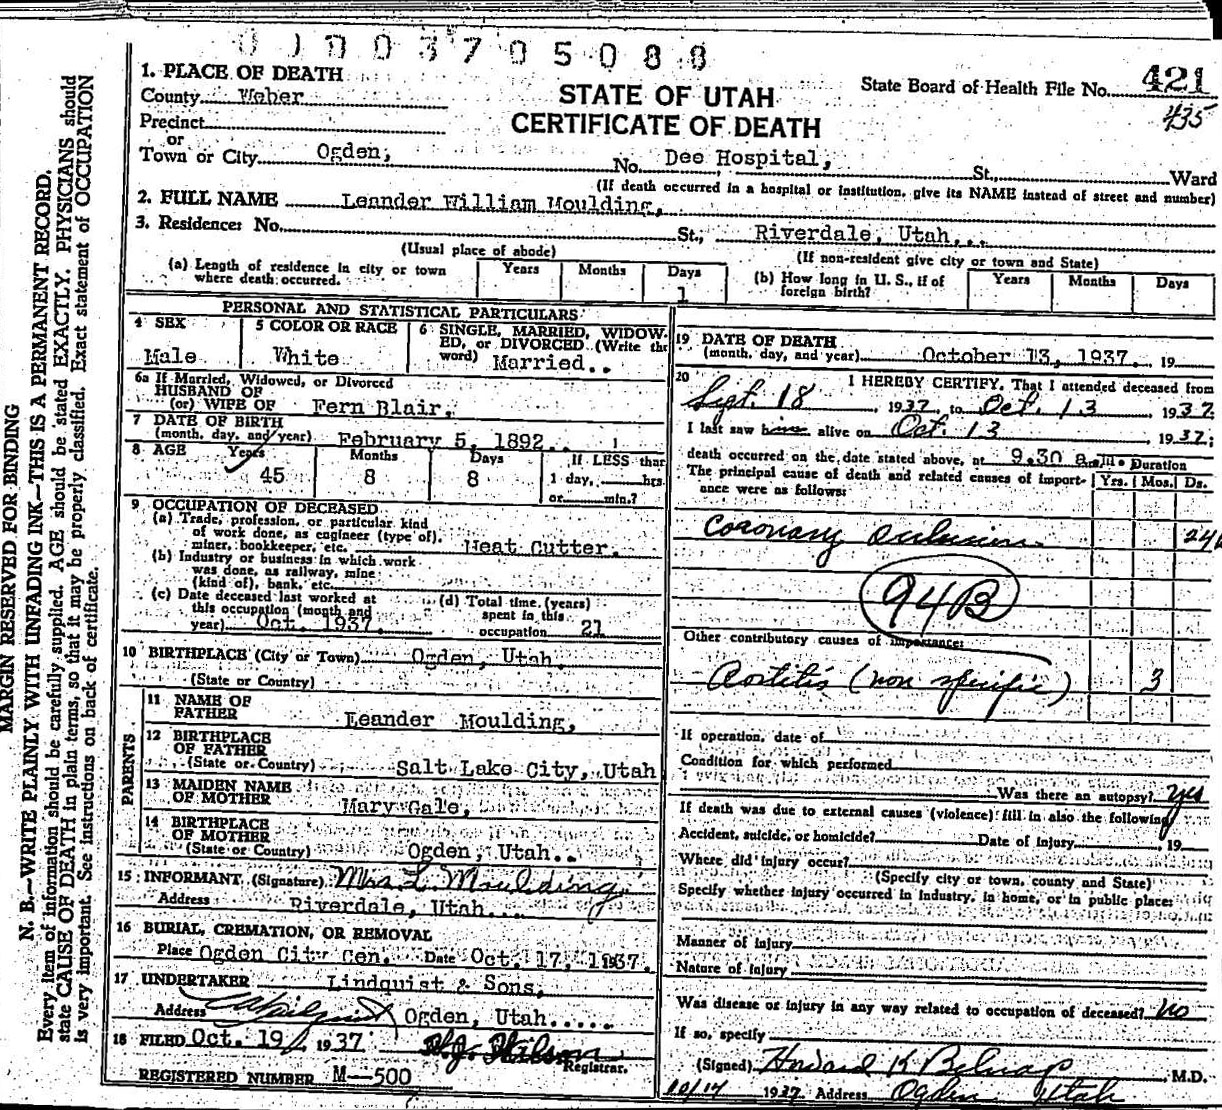 0 1 0 0 3 7 0 5 0 8 8
1. PLACE OF DEATH
County Weber
Precinct
or
Town or City Ogden,
STATE OF UTAH
CERTIFICATE OF DEATH
State Board of Health File No. 421
435
No. Dee Hospital, St., Ward
(If death occurred in a hospital or institution, give its NAME instead of street and number)
2. FULL NAME Leander William Moulding,
3. Residence: No. St., Riverdale, Utah...
(Usual place of abode)
(If non-resident give city or town and State)
(a) Length of residence in city or town where death occurred. Years Months Days 1
(b) How long in U. S., if of foreign birth? Years Months Days
PERSONAL AND STATISTICAL PARTICULARS
4 SEX Male
5 COLOR OR RACE White
6 SINGLE, MARRIED, WIDOWED, or DIVORCED (Write the word) Married..
6a If Married, Widowed, or Divorced
HUSBAND OF
(or) WIFE OF Fern Blair,
7 DATE OF BIRTH
(month, day, and year) February 5, 1892
8 AGE Years 45 Months 8 Days 8 If LESS than 1 day, hrs. or min.?
9 OCCUPATION OF DECEASED
(a) Trade, profession, or particular kind
of work done, as engineer (type of),
miner, bookkeeper, etc. Meat Cutter.
(b) Industry or business in which work
was done, as railway, mine
(kind of), bank, etc.
(c) Date deceased last worked at
this occupation (month and
year) Oct. 1937.
(d) Total time (years)
spent in this
occupation 21
10 BIRTHPLACE (City or Town) Ogden, Utah.
(State or Country)
PARENTS
11 NAME OF
FATHER Leander Moulding,
12 BIRTHPLACE
OF FATHER
(State or Country) Salt Lake City, Utah
13 MAIDEN NAME
OF MOTHER Mary Gale,
14 BIRTHPLACE
OF MOTHER
(State or Country) Ogden, Utah..
15 INFORMANT (Signature) Mrs L Moulding
Address Riverdale, Utah...
16 BURIAL, CREMATION, OR REMOVAL
Place Ogden City Cem. Date Oct. 17, 1937.
17 UNDERTAKER Lindquist & Sons,
Address Ogden, Utah.....
18 FILED Oct. 19, 1937
Registrar.
REGISTERED NUMBER M-500
19 DATE OF DEATH
(month, day, and year) October 13, 1937. 19
20 I HEREBY CERTIFY, That I attended deceased from
Sept. 18, 1937, to Oct. 13, 1937.
I last saw him alive on Oct. 13, 1937;
death occurred on the date stated above, at 9.30 a.m. Duration
The principal cause of death and related causes of importance were as follows: Yrs. Mos. Ds.
Coronary Occlusion 24h
94B
Other contributory causes of importance:
Aortitis (non specific) 3
If operation, date of
Condition for which performed
Was there an autopsy? yes
If death was due to external causes (violence) fill in also the following:
Accident, suicide, or homicide? Date of injury 19
Where did injury occur?
(Specify city or town, county and State)
Specify whether injury occurred in industry, in home, or in public place:
Manner of injury
Nature of injury
Was disease or injury in any way related to occupation of deceased? no
If so, specify
(Signed) Howard K Belnap, M.D.
10/14 1937 Address Ogden Utah
MARGIN RESERVED FOR BINDING
N. B.—WRITE PLAINLY WITH UNFADING INK—THIS IS A PERMANENT RECORD.
Every item of information should be carefully supplied. AGE should be stated EXACTLY. PHYSICIANS should
state CAUSE OF DEATH in plain terms, so that it may be properly classified. Exact statement of OCCUPATION
is very important. See instructions on back of certificate.